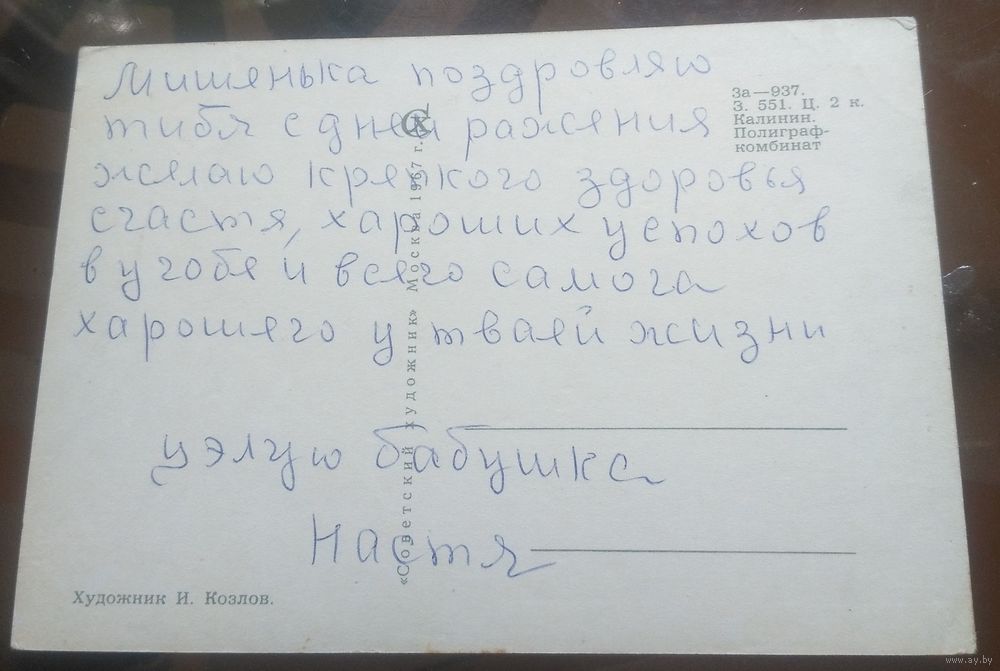 Мишянька поздровляю
тибя с днем ражения
желаю крепкого здоровья
счастя, хароших успохов
в учобе и всего самога
харошего у тваей жизни
цэлую бабушка
Настя
За—937.
З. 551. Ц. 2 к.
Калинин.
Полиграф-
комбинат
«Советский художник» Москва 1967 г.
Художник И. Козлов.
www.ay.by